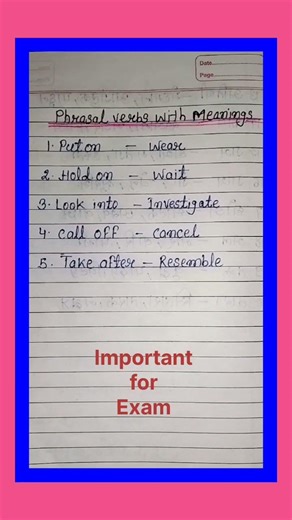 Date
Page
Phrasal verbs with Meanings
1. Put on – Wear
2. Hold on – Wait
3. Look into – Investigate
4. Call OFF – Cancel
5. Take after – Resemble
Important
for
Exam